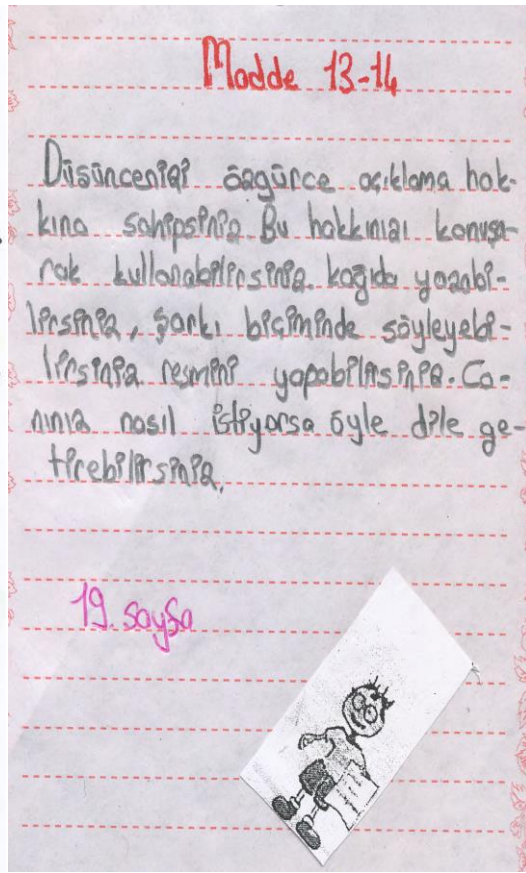 Madde 13-14
Düşüncenizi özgürce açıklama hak-
kına sahipsiniz Bu hakkınızı konuşa-
rak kullanabilirsiniz. kağıda yazabi-
lirsiniz, şarkı biçiminde söyleyebi-
lirsiniz resmini yapabilirsiniz. Ca-
nınız nasıl istiyorsa öyle dile ge-
tirebilirsiniz.
19. sayfa